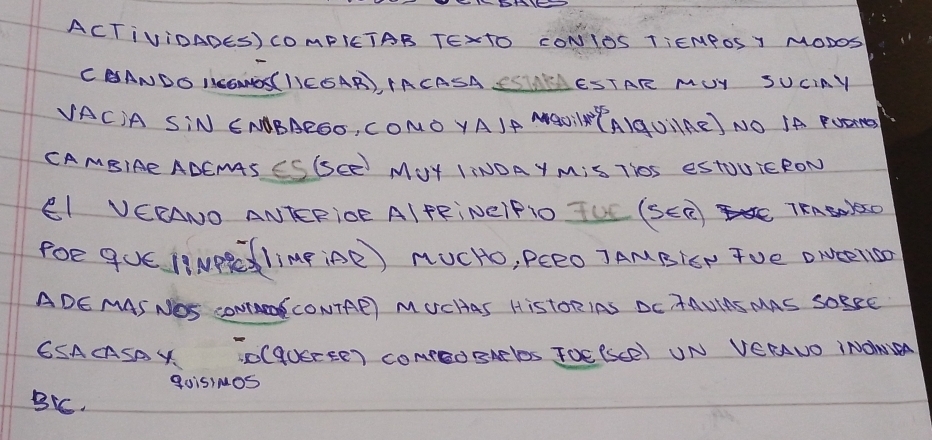 ACTIVIDADES) COMPLETAR TEXTO CON LOS TIEMPOS Y MODOS
CUANDO LLEGAMOS (LLEGAR), LA CASA ESTABA ESTAR MUY SUCIA Y
VACIA SIN ENBARGO, COMO YA LA (AlQUILAR) NO LA PUDIMOS
CAMBIAR ADEMAS ES (SER) MUY LINDA Y MIS TIOS ESTUVIERON
El VERANO ANTERIOR Al PRINCIPIO FUE (SER) TRABAJOSO
POR QUE (LIMPIAR) MUCHO, PERO TAMBIEN FUE DIVERTIDO
ADEMAS NOS (CONTAR) MUCHAS HISTORIAS DE FANTASMAS SOBRE
ESA CASA Y (QUERER) COMPROBARLOS FUE (SER) UN VERANO INOLVIDA
QUISIMOS
BLE.